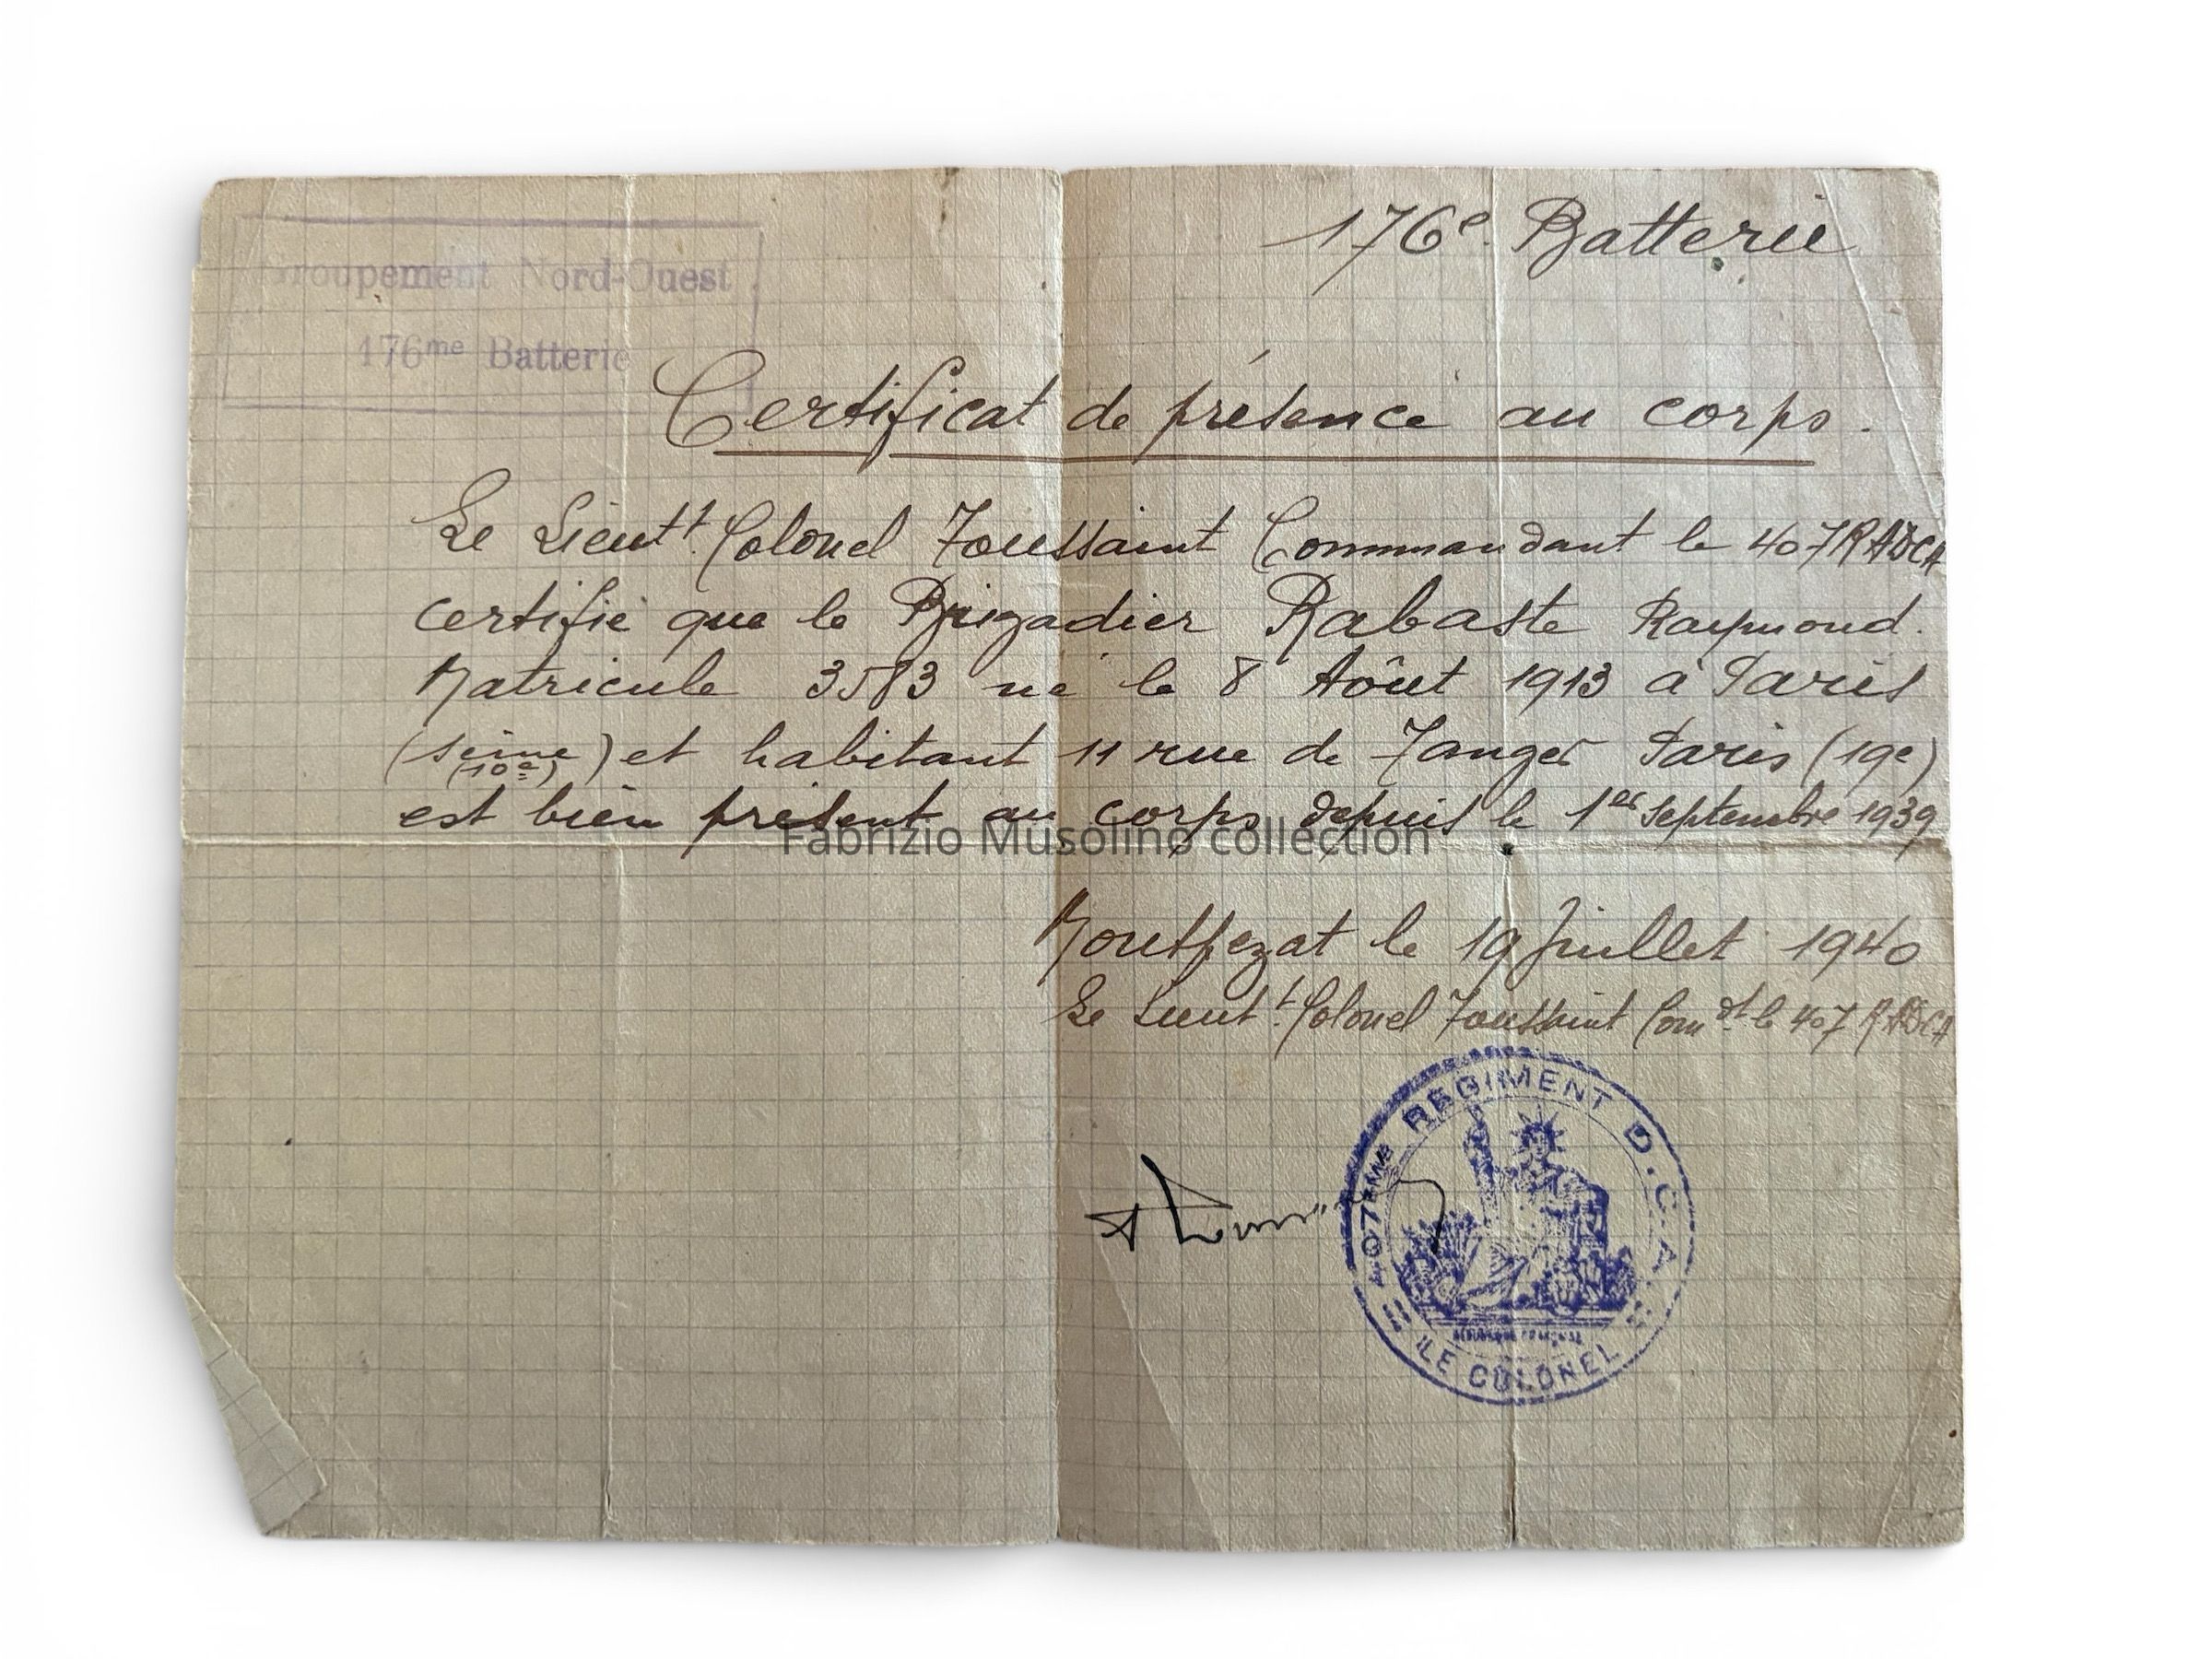 Groupement Nord-Ouest
176me Batterie
176e Batterie
Certificat de présence au corps.
Le Lieutt. Colonel Toussaint Commandant le 407 RADCA
certifie que le Brigadier Rabaste Raymond.
Matricule 3583 né le 8 Août 1913 à Paris
(Seine) et habitant 11 rue de Tanger Paris (19e)
(10e)
est bien présent au corps depuis le 1er Septembre 1939
Fabrizio Musolino collection
Montpezat le 19 Juillet 1940
Le Lieutt. Colonel Toussaint Comdt le 407 RADCA
407EME REGIMENT D.C.A.
LE COLONEL